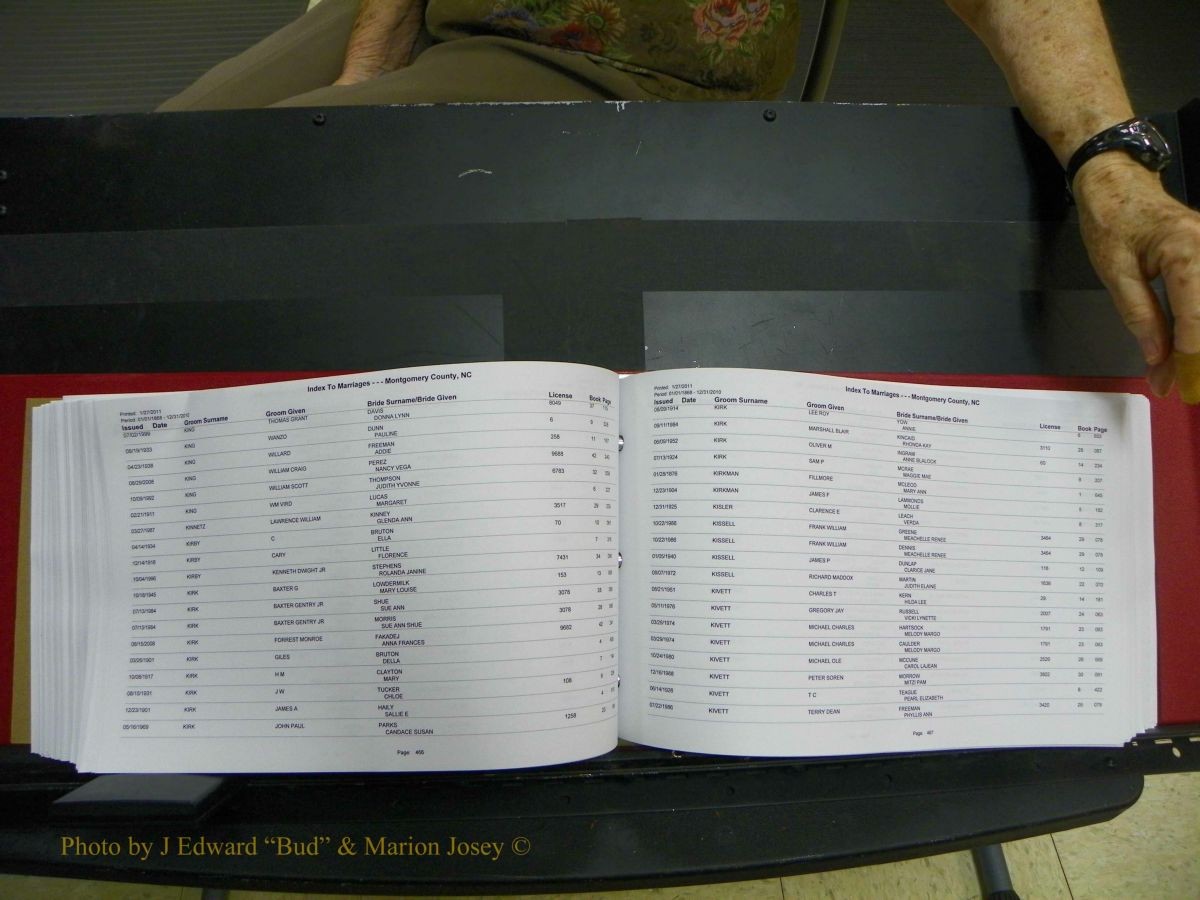 Index To Marriages - - - Montgomery County, NC
Printed: 1/27/2011
Period: 01/01/1868 - 12/31/2010
Issued Date Groom Surname Groom Given Bride Surname/Bride Given License Book Page
07/02/1999 KING THOMAS GRANT DAVIS 8049 37
DONNA LYNN
KING WANZO DUNN 6 9
PAULINE
04/23/1938 KING WILLARD FREEMAN 258 11
ADDIE
KING WILLIAM CRAIG PEREZ 9688 42
NANCY VEGA
10/09/1992 KING WILLIAM SCOTT THOMPSON 6783 32
JUDITH YVONNE
02/21/1911 KING WM VIRD LUCAS 6
MARGARET
03/27/1987 KINNETZ LAWRENCE WILLIAM KINNEY 3517 29
GLENDA ANN
04/14/1934 KIRBY C BRUTON 70 10
ELLA
12/14/1918 KIRBY CARY LITTLE 7
FLORENCE
10/04/1996 KIRBY KENNETH DWIGHT JR STEPHENS 7431 34
ROLANDA JANINE
10/18/1945 KIRK BAXTER G LOWDERMILK 153 13
MARY LOUISE
07/13/1984 KIRK BAXTER GENTRY JR SHUE 3078 28
SUE ANN
07/13/1984 KIRK BAXTER GENTRY JR MORRIS 3078 28
SUE ANN SHUE
06/15/2008 KIRK FORREST MONROE FAKADEJ 9662 42
ANNA FRANCES
03/26/1901 KIRK GILES BRUTON 4
DELLA
10/08/1917 KIRK H M CLAYTON 7
MARY
08/15/1931 KIRK J W TUCKER 108 9
CHLOE
12/23/1901 KIRK JAMES A HAILY 4
SALLIE E
05/16/1969 KIRK JOHN PAUL PARKS 1258
CANDACE SUSAN
Page: 466
Index To Marriages - - - Montgomery County, NC
Printed: 1/27/2011
Period: 01/01/1868 - 12/31/2010
Issued Date Groom Surname Groom Given Bride Surname/Bride Given License Book Page
08/09/1914 KIRK LEE ROY YOW 6
ANNIE
09/11/1984 KIRK MARSHALL BLAIR KINCAID 3110 28 087
RHONDA KAY
06/09/1952 KIRK OLIVER M INGRAM 60 14 234
ANNE BLALOCK
07/13/1924 KIRK SAM P MCRAE 8 207
MAGGIE MAE
01/28/1876 KIRKMAN FILLMORE MCLEOD 1 045
MARY ANN
12/23/1904 KIRKMAN JAMES F LAMMONDS 5 182
MOLLIE
12/31/1925 KISLER CLARENCE E LEACH 8 317
VERDA
10/22/1986 KISSELL FRANK WILLIAM GREENE 3464 29 078
MEACHELLE RENEE
10/22/1986 KISSELL FRANK WILLIAM DENNIS 3464 29 078
MEACHELLE RENEE
01/05/1940 KISSELL JAMES P DUNLAP 118 12 109
CLARICE JANE
09/07/1972 KISSELL RICHARD MADDOX MARTIN 1638 22 070
JUDITH ELAINE
06/21/1961 KIVETT CHARLES T KERN 29 14 181
HILDA LEE
05/11/1976 KIVETT GREGORY JAY RUSSELL 2007 24 063
VICKI LYNETTE
03/29/1974 KIVETT MICHAEL CHARLES HARTSOCK 1791 23 083
MELODY MARGO
03/29/1974 KIVETT MICHAEL CHARLES CAULDER 1791 23 083
MELODY MARGO
10/24/1980 KIVETT MICHAEL OLE MCCUNE 2520 26
CAROL LAJEAN
12/16/1988 KIVETT PETER SOREN MORROW 3802 30 091
MITZI PAM
06/14/1928 KIVETT T C TEAGUE 8 422
PEARL ELIZABETH
07/22/1986 KIVETT TERRY DEAN FREEMAN 3420 28 079
PHYLLIS ANN
Page: 467
Photo by J Edward “Bud” & Marion Josey ©